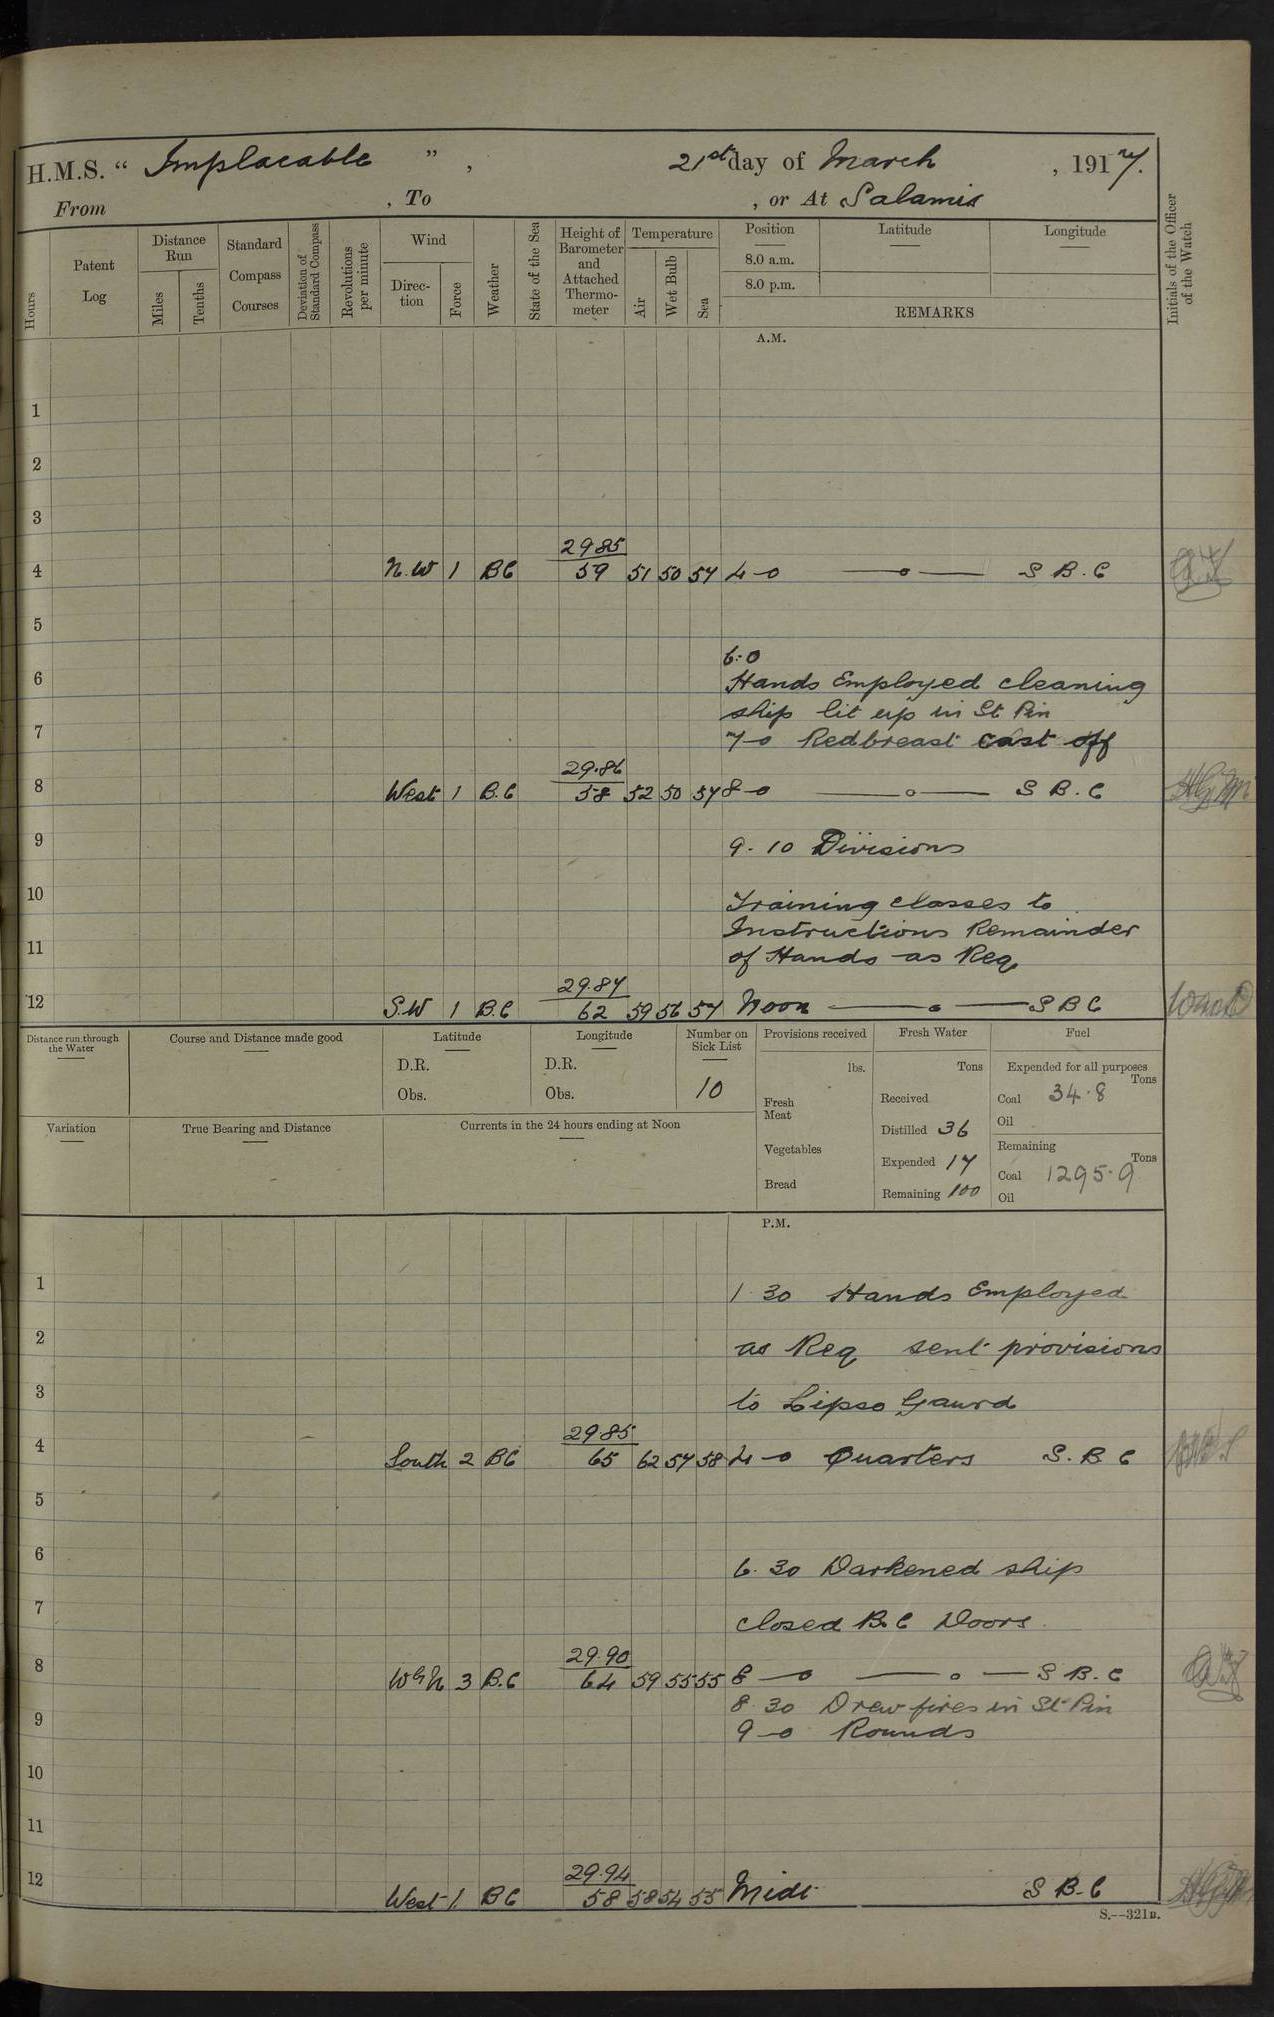 H.M.S. " Implacable ", 21st day of March, 1917.
From , To , or At Salamis
Hours
Patent Log
Distance Run
Miles
Tenths
Standard Compass Courses
Deviation of Standard Compass
Revolutions per minute
Wind
Direction
Force
Weather
State of the Sea
Height of Barometer and Attached Thermometer
Temperature
Air
Wet Bulb
Sea
Position
8.0 a.m.
8.0 p.m.
Latitude
Longitude
REMARKS
Initials of the Officer of the Watch
A.M.
1
2
3
29 85
4 N.W 1 BC 59 51 50 57 4-0 —o— S B.C
5
6.0
6 Hands Employed cleaning
ship lit up in St Pin
7 7-0 Redbreast cast off
29.86
8 West 1 B.C 58 52 50 57 8-0 —o— S B.C
9 9.10 Divisions
10 Training classes to
Instructions Remainder
11 of Hands as Req
29.87
12 S.W 1 B.C 62 59 56 57 Noon —o— S B C
Distance run through the Water
Course and Distance made good
Latitude
D.R.
Obs.
Longitude
D.R.
Obs.
Number on Sick List
10
Provisions received
lbs.
Fresh Meat
Vegetables
Bread
Fresh Water
Tons
Received
Distilled 36
Expended 17
Remaining 100
Fuel
Expended for all purposes
Tons
Coal 34.8
Oil
Remaining
Tons
Coal 1295.9
Oil
Variation
True Bearing and Distance
Currents in the 24 hours ending at Noon
P.M.
1 1 30 Hands Employed
2 as Req sent provisions
3 to Lipso Gaurd
29.85
4 South 2 BC 65 62 57 58 4-0 Quarters S.B C
5
6 6.30 Darkened ship
7 closed B.C Doors
29.90
8 WBN 3 B.C 64 59 55 55 8-0 —o— S B.C
8.30 Drew fires in St Pin
9 9-0 Rounds
10
11
29.94
12 West 1. BC 58 58 54 55 Midt S B.C
S.--321B.